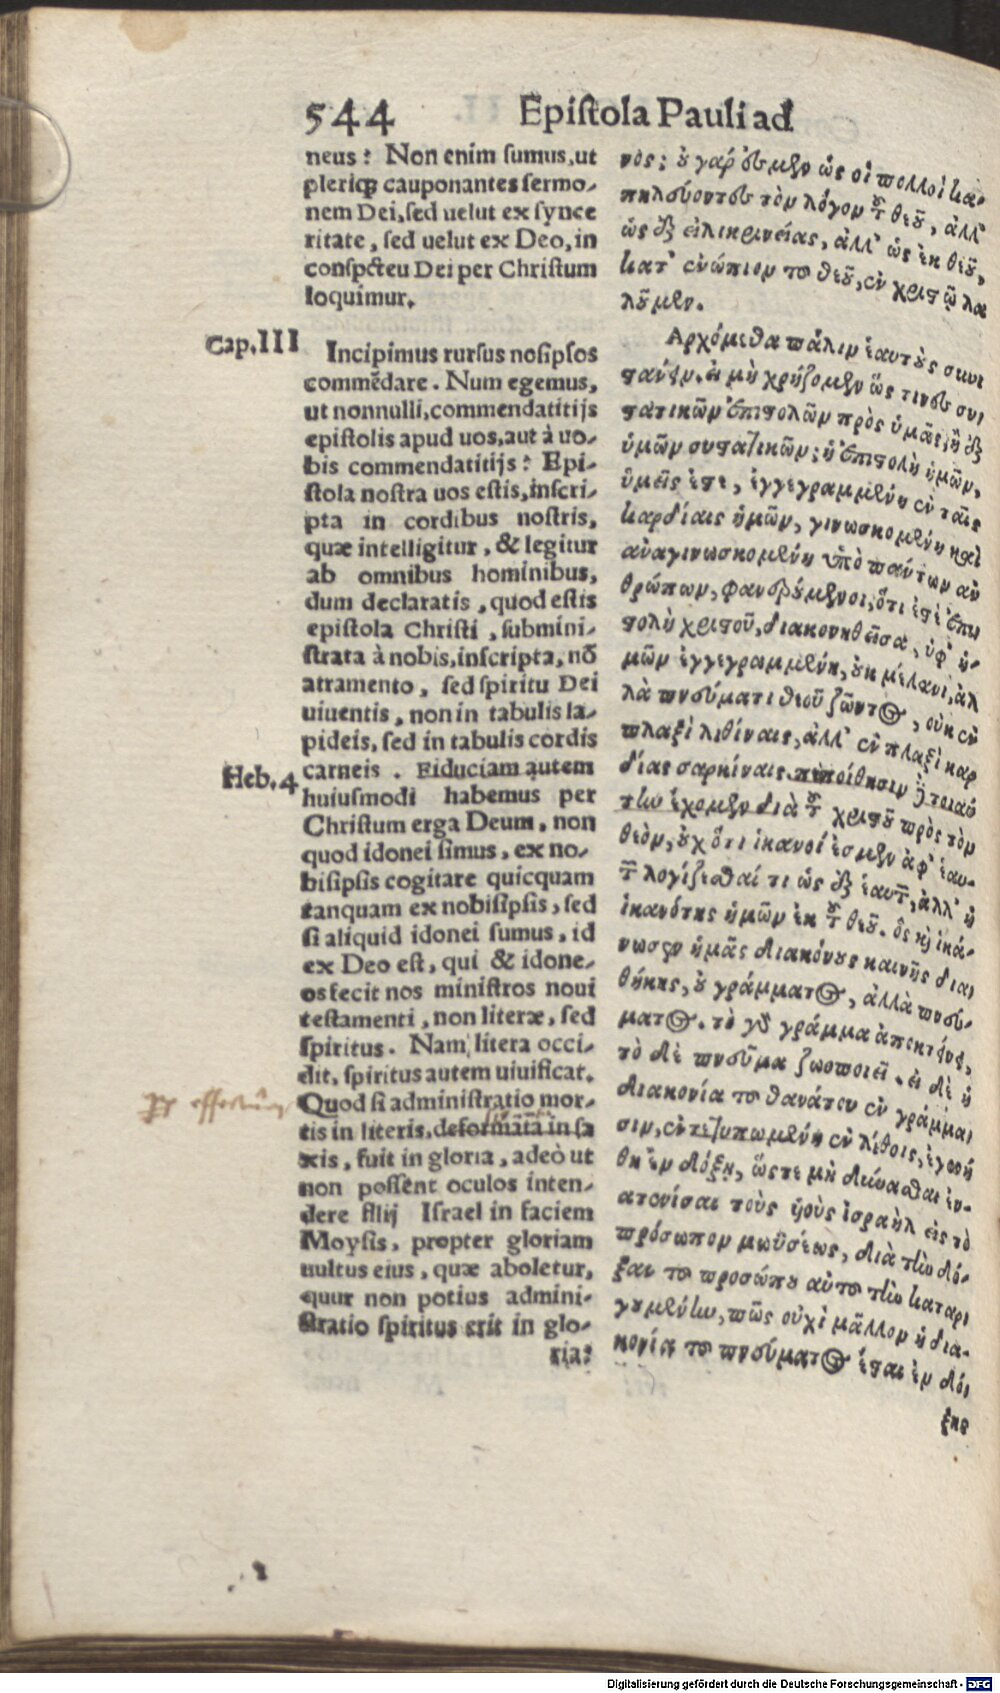 544 Epistola Pauli ad
neus? Non enim sumus, ut
pleriq; cauponantes sermo-
nem Dei, sed uelut ex synce
ritate, sed uelut ex Deo, in
conspcteu Dei per Christum
loquimur.
Cap. III
Incipimus rursus nosipsos
commẽdare. Num egemus,
ut nonnulli, commendatitijs
epistolis apud uos, aut à uo-
bis commendatitijs? Epi-
stola nostra uos estis, inscri-
pta in cordibus nostris,
quæ intelligitur, & legitur
ab omnibus hominibus,
dum declaratis, quod estis
epistola Christi, submini-
strata à nobis, inscripta, nõ
atramento, sed spiritu Dei
uiuentis, non in tabulis la-
pideis, sed in tabulis cordis
Heb. 4
carneis. Fiduciam autem
huiusmodi habemus per
Christum erga Deum, non
quod idonei simus, ex no-
bisipsis cogitare quicquam
tanquam ex nobisipsis, sed
si aliquid idonei sumus, id
ex Deo est, qui & idone-
os fecit nos ministros noui
testamenti, non literæ, sed
spiritus. Nam litera occi-
dit, spiritus autem uiuificat.
Quod si administratio mor-
tis in literis, deformãtã in sa
xis, fuit in gloria, adeò ut
non possent oculos inten-
dere filij Israel in faciem
Moysis, propter gloriam
uultus eius, quæ aboletur,
quur non potius admini-
stratio spiritus erit in glo-
ria?
νός; ὀυ γάρ ἐσμεν ὡς οἱ πολλοὶ κα-
πηλεύοντες τὸν λόγον τοῦ θεοῦ, ἀλλ᾽
ὡς ἐξ εἰλικρινείας, ἀλλ᾽ ὡς ἐκ θεοῦ,
κατ᾽ ἐνώπιον τοῦ θεοῦ, ἐν χριστῷ λα
λοῦμεν.
Αρχόμεθα πάλιν ἑαυτοὺς συνι
στάνειν. εἰ μὴ χρῄζομεν ὥς τινες συς
τατικῶν ἐπιστολῶν πρὸς ὑμᾶς, ἢ ἐξ
ὑμῶν συστατικῶν; ἡ ἐπιστολὴ ἡμῶν,
ὑμεῖς ἐστε, ἐγγεγραμμένη ἐν ταῖς
καρδίαις ἡμῶν, γινωσκομένη καὶ
ἀναγινωσκομένη ὑπὸ πάντων ἀν
θρώπων, φανερούμενοι, ὅτι ἐστὲ ἐπι
στολὴ χριστοῦ, διακονηθεῖσα, ὑφ᾽ ἡ-
μῶν ἐγγεγραμμένη, ὀυ μέλανι, ἀλ
λὰ πνεύματι θεοῦ ζῶντος, οὐκ ἐν
πλαξὶ λιθίναις, ἀλλ᾽ ἐν πλαξὶ καρ
δίας σαρκίναις. πεποίθησιν δὲ τοιαύ
την ἔχομεν διὰ τοῦ χριστοῦ πρὸς τὸν
θεόν, οὐχ ὅτι ἱκανοί ἐσμεν ἀφ᾽ ἑαυ-
τῶν λογίζεσθαί τι ὡς ἐξ ἑαυτῶν, ἀλλ᾽ ἡ
ἱκανότης ἡμῶν ἐκ τοῦ θεοῦ. ὃς καὶ ἱκά-
νωσεν ἡμᾶς διακόνους καινῆς δια
θήκης, οὐ γράμματος, ἀλλὰ πνεύ-
ματος. τὸ γὰρ γράμμα ἀποκτείνει,
τὸ δὲ πνεῦμα ζωοποιεῖ. εἰ δὲ ἡ
διακονία τοῦ θανάτου ἐν γράμμα
σιν, ἐντετυπωμένη ἐν λίθοις, ἐγενή
θη ἐν δόξῃ, ὥστε μὴ δύνασθαι ἐν-
ατενίσαι τοὺς ὑιοὺς ἰσραὴλ εἰς τὸ
πρόσωπον μωϋσέως, διὰ τὴν δό-
ξαν τοῦ προσώπου αὐτοῦ τὴν καταρ
γουμένην, πῶς οὐχὶ μᾶλλον ἡ δια-
κονία τοῦ πνεύματος ἔσται ἐν δό
ξης
Digitalisierung gefördert durch die Deutsche Forschungsgemeinschaft - DFG